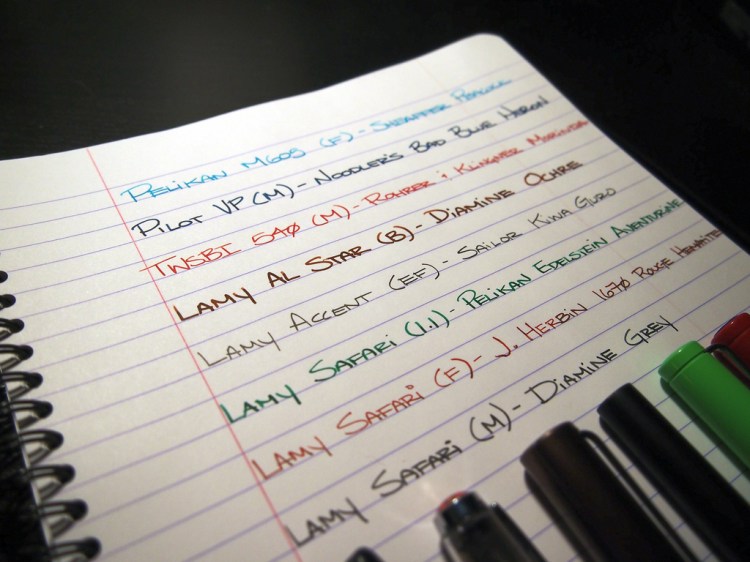 PELIKAN M605 (F) - SHEAFFER PEACOCK
PILOT VP (M) - NOODLER'S BAD BLUE HERON
TWSBI 540 (M) - ROHRER & KLINGNER MORINDA
LAMY AL STAR (B) - DIAMINE OCHRE
LAMY ACCENT (EF) - SAILOR KIWA GURO
LAMY SAFARI (1.1) - PELIKAN EDELSTEIN AVENTURINE
LAMY SAFARI (F) - J. HERBIN 1670 ROUGE HEMATITE
LAMY SAFARI (M) - DIAMINE GREY